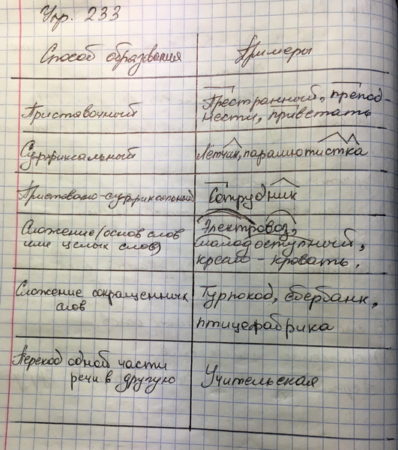 Упр. 233
Способ образования
Примеры
Приставочный
Престранный, препод-
нести, привстать
Суффиксальный
Летчик, парашютистка
Приставочно-суффиксальный
Сотрудник
Сложение (основ слов
или целых слов)
Электровоз,
малодоступный,
кресло-кровать.
Сложение сокращенных
слов
Турпоход, сбербанк,
птицефабрика
Переход одной части
речи в другую
Учительская